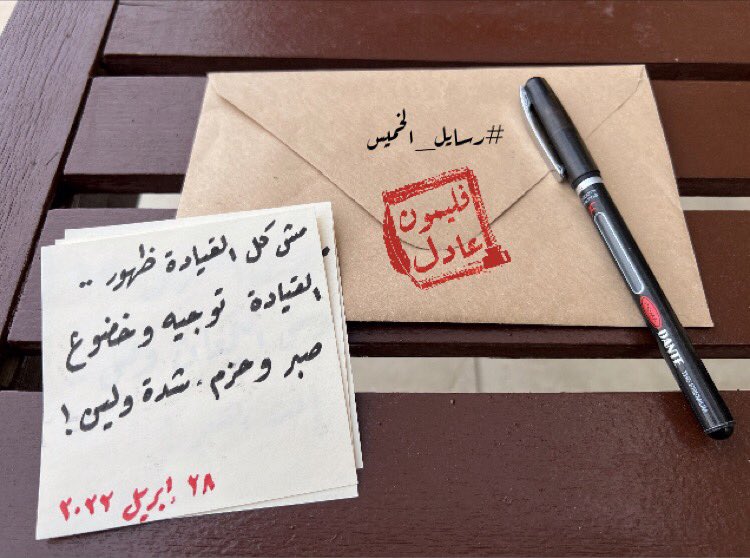 #رسايل_الخميس
فليمون
عادل
مش كل القيادة ظهور ..
القيادة توجيه وخضوع
صبر وحزم . شدة ولين !
٢٨ إبريل ٢٠٢٢
DANTE